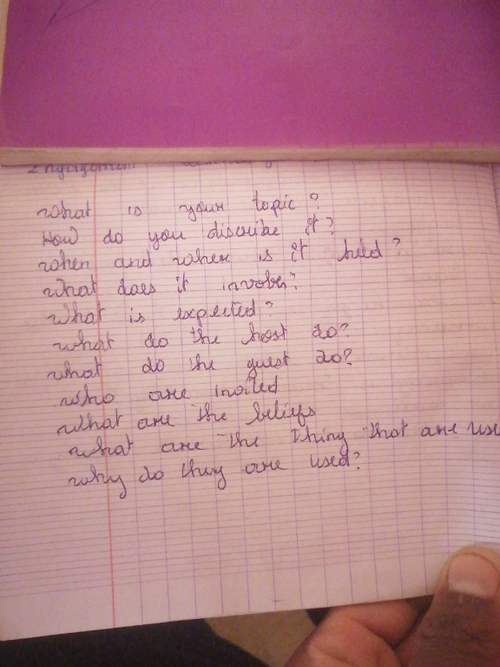 what is your topic?
How do you discribe it?
when and when is it held?
what does it involves?
what is expected?
what do the host do?
what do the guest do?
who are invited
what are the beliefs
what are the thing that are use
why do they are used?